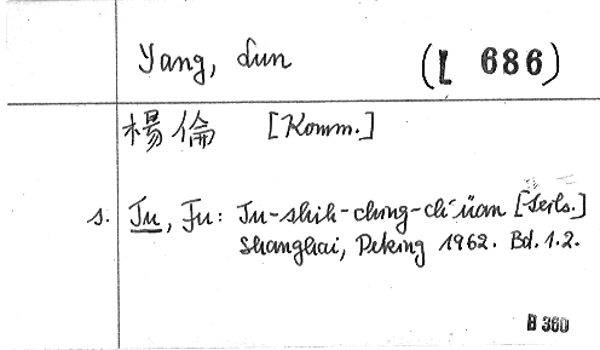 Yang, Lun
(L 686)
楊倫 [Komm.]
s. Tu, Fu: Tu-shih-ching-ch'üan [Teils.]
Shanghai, Peking 1962. Bd. 1.2.
B 360